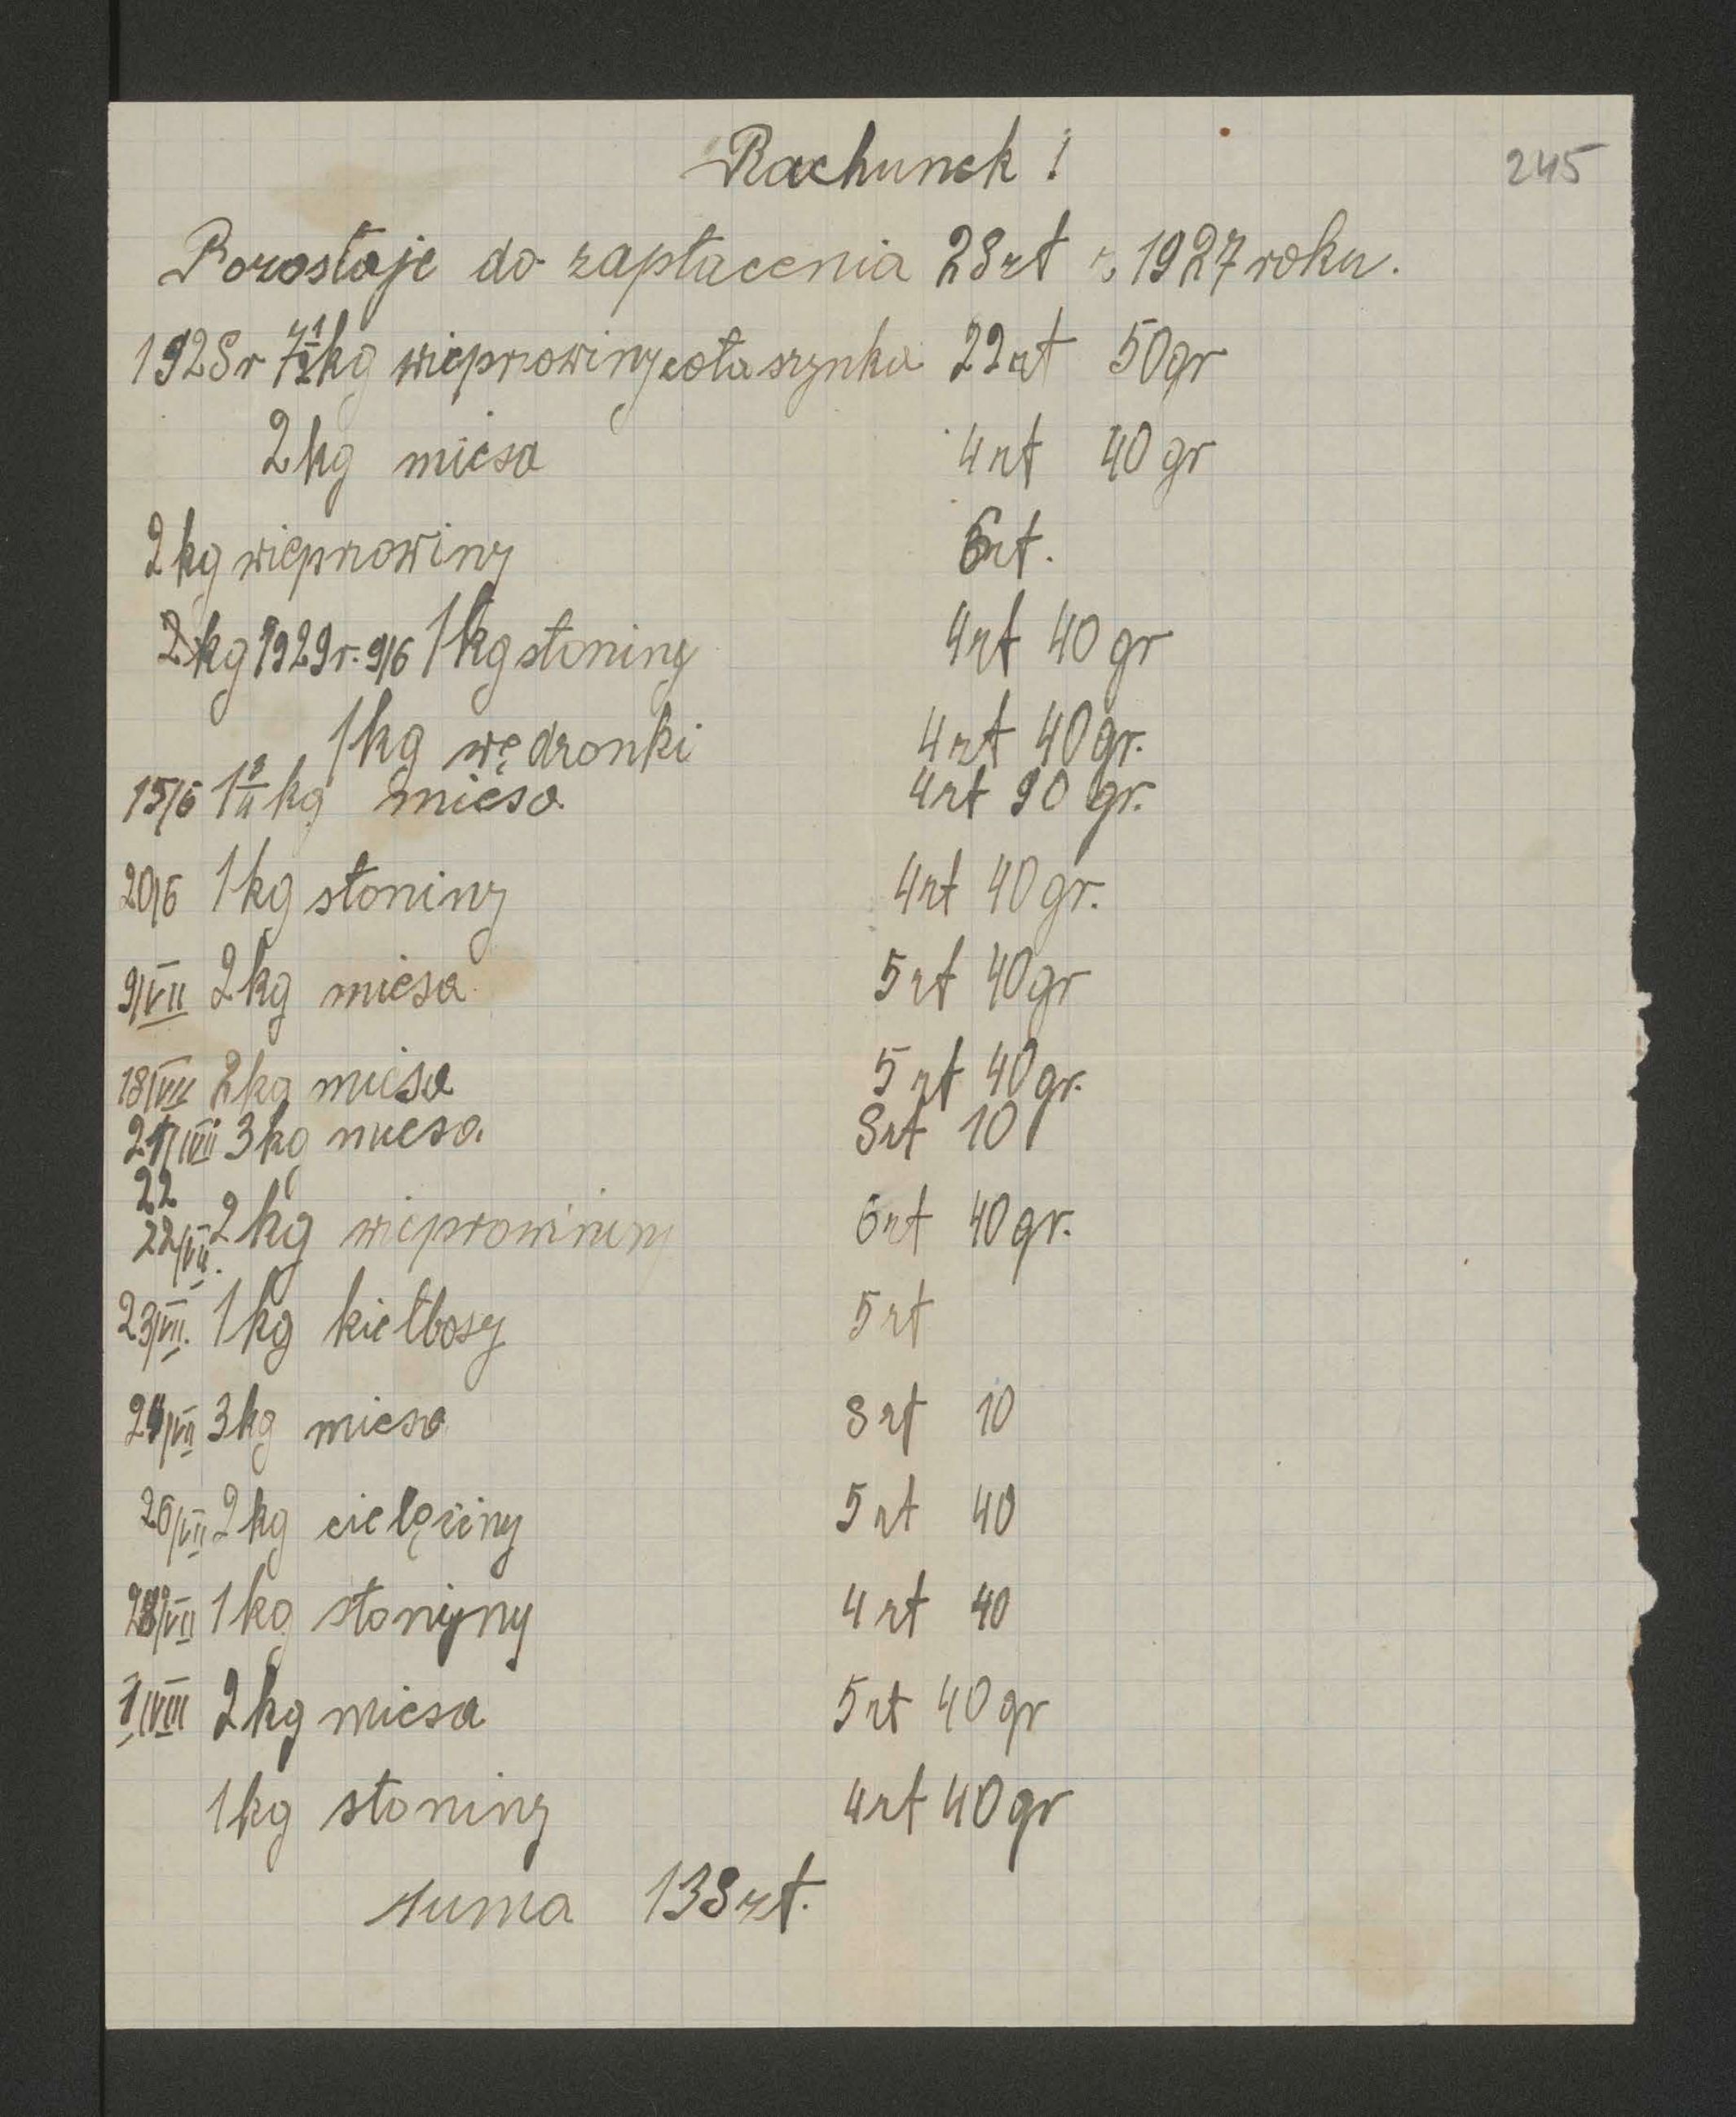 Rachunek !
245
Pozostaje do zapłacenia 28 zł z 1927 roku.
1928 r 7 1/2 kg wieprowiny cała szynka 22 zł 50 gr
2 kg miesa 4 zł 40 gr
2 kg wieprowiny 6 zł.
2 kg 1929 r. 9/6 1 kg słoniny 4 zł 40 gr
1 kg wędzonki 4 zł 40 gr.
15/6 1 3/4 kg miesa 4 zł 90 gr.
20/6 1 kg słoniny 4 zł 40 gr.
9/VII 2 kg miesa 5 zł 40 gr
18/VII 2 kg miesa 5 zł 40 gr.
21/VII 3 kg miesa 8 zł 10
22
22/VII. 2 kg wieprowininy 6 zł 40 gr.
23/VII. 1 kg kiełbosy 5 zł
24/VII 3 kg miesa 8 zł 10
26/VII 2 kg cielęciny 5 zł 40
28/VII 1 kg słoniyny 4 zł 40
1/VIII 2 kg miesa 5 zł 40 gr
1 kg słoniny 4 zł 40 gr
suma 138 zł.